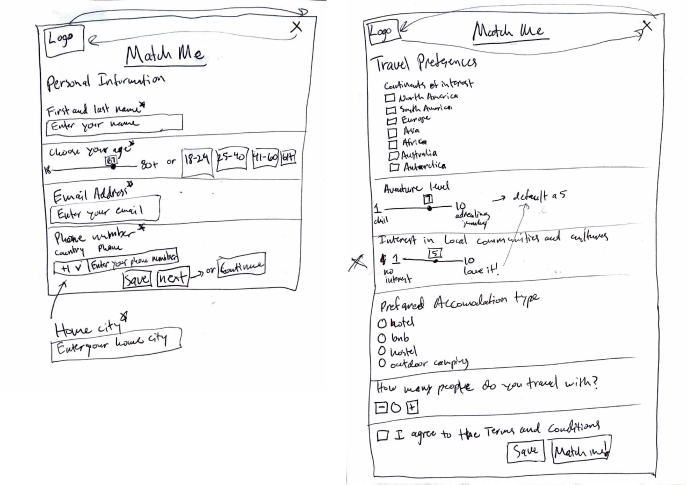 Logo
X
Match Me
Personal Information
First and last name*
Enter your name
Choose your age*
18 80+ or 18-24 25-40 41-60 61+
Email Address*
Enter your email
Phone number*
Country Phone
+1 v Enter your phone number
Save next → or Continue
Home city*
Enter your home city
Logo
X
Match Me
Travel Preferences
Continents of interest
North America
South America
Europe
Asia
Africa
Australia
Antarctica
level
1 10 → default a 5
chill
Interest in Local communities and cultures
1 5 10
no interest
love it!
Accomodation type
hotel
bnb
hostel
outdoor camping
How many people do you travel with?
- 0 +
I agree to the Terms and Conditions
Save Match me!